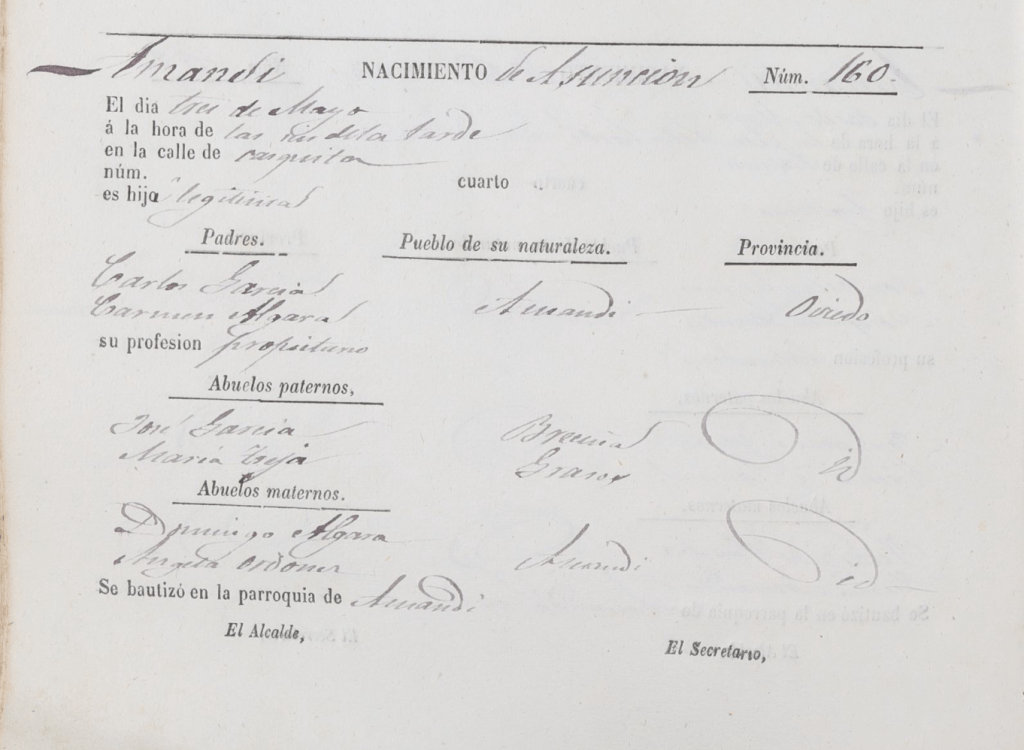 Amandi NACIMIENTO de Asuncion Núm. 160.
El dia tres de Mayo
á la hora de las de la tarde
en la calle de
núm. cuarto
es hija legitima
Padres. Pueblo de su naturaleza. Provincia.
Carlos Garcia
Carmen Algara Amandi Oviedo
su profesion propietario
Abuelos paternos,
José Garcia Breceña
Maria Grases id
Abuelos maternos.
Domingo Algara
Angela Ordoñes Amandi id
Se bautizó en la parroquia de Amandi
El Alcalde,
El Secretario,